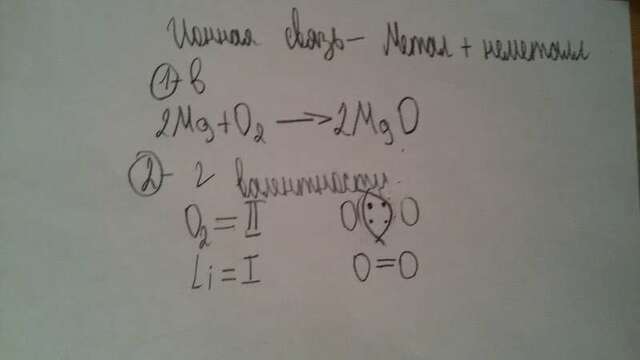 Ионная связь - Метал + неметалл
1 - в
2Mg + O2 → 2MgO
2 - г валентности.
O2 = II O :: O
Li = I O = O